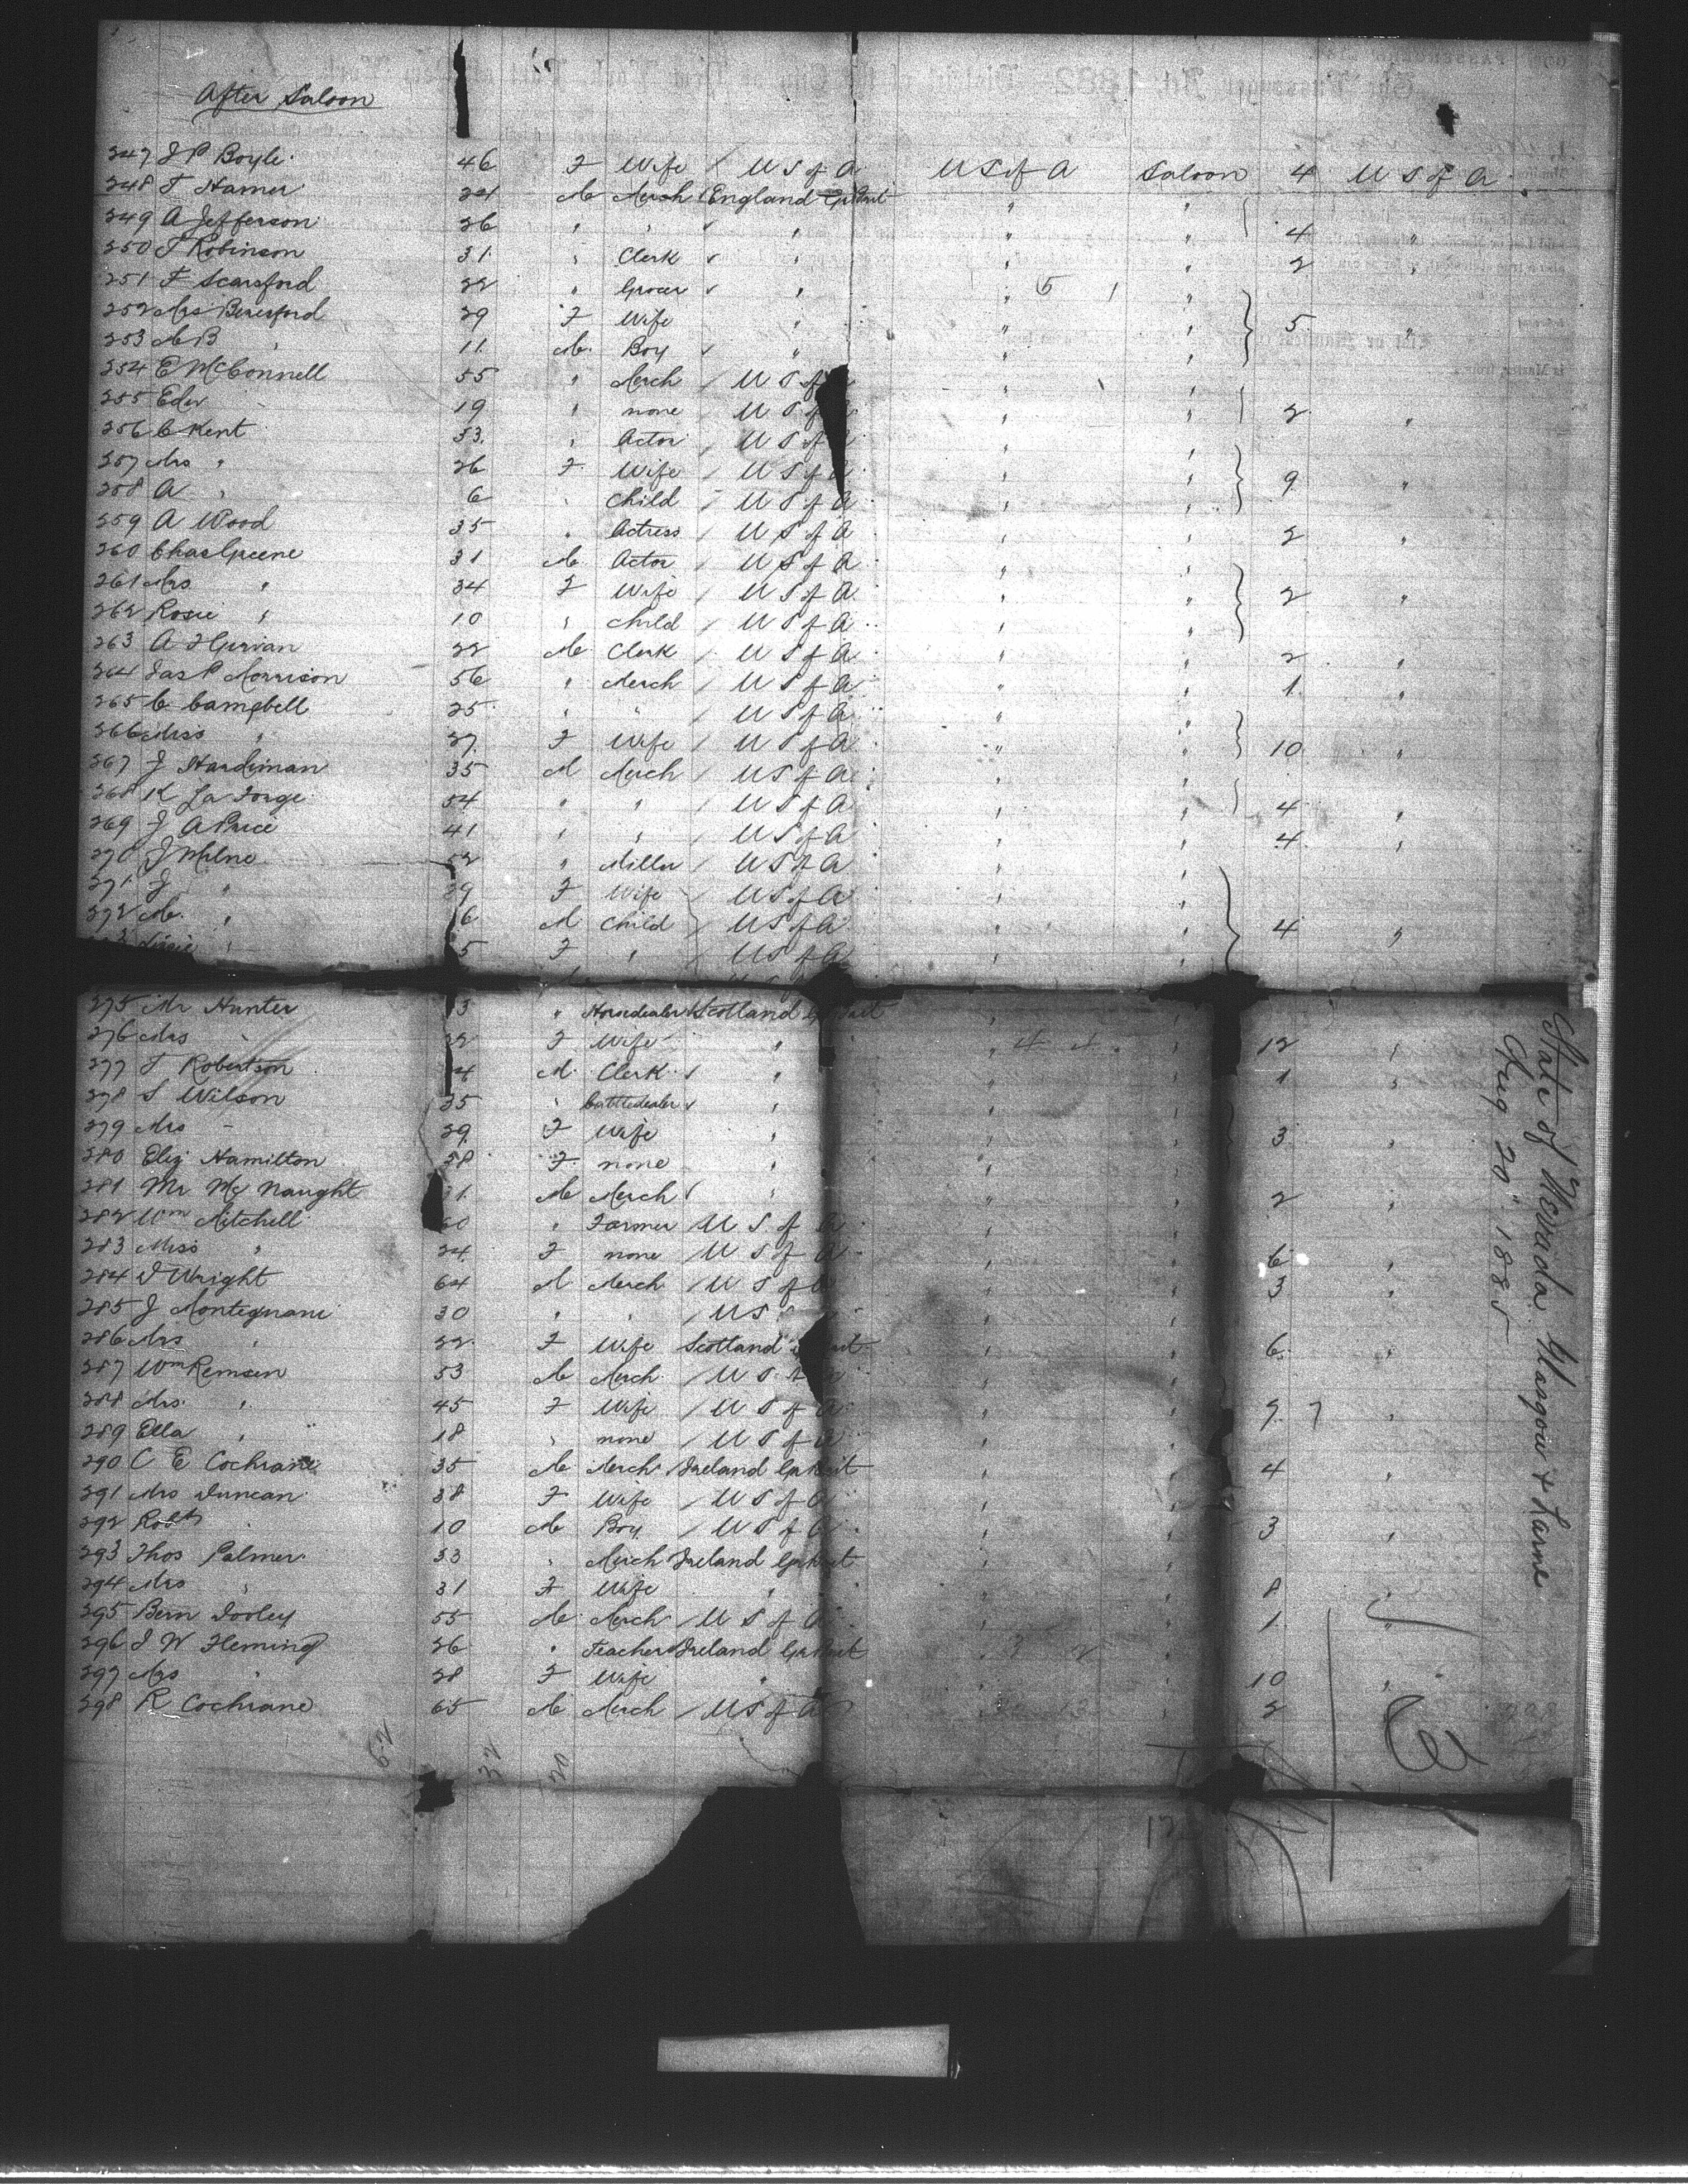 After Saloon
247 J P Boyle 46 F Wife / U S of A U S of A Saloon 4 U S of A
248 T Hamer 24 M Merch England Gt Brit " "
249 A Jefferson 26 " " " " " 4 "
250 T Robinson 31 " Clerk " " " 2 "
251 F Scarsford 22 " Grocer " " 5 1 "
252 Mrs Beresford 29 F Wife " " " 5 "
253 M B " 11 M Boy " " "
254 E McConnell 55 " Merch / U S of A " "
255 Edw 19 " none / U S of A " " 2 "
256 C Kent 33 " Actor / U S of A " "
257 Mrs " 26 F Wife / U S of A " " 9 "
258 A " 6 " Child / U S of A " "
259 A Wood 35 " Actress / U S of A " " 2 "
260 Chas Greene 31 M Actor / U S of A " "
261 Mrs " 34 F Wife / U S of A " " 2 "
262 Rosie " 10 " Child / U S of A " "
263 A F Girvan 22 M Clerk / U S of A " " 2 "
264 Jas P Morrison 56 " Merch / U S of A " " 1 "
265 C Campbell 25 " " / U S of A " "
266 Miss " 27 F Wife / U S of A " " 10 "
267 J Hardiman 35 M Merch / U S of A " "
268 K La Forge 54 " " / U S of A " " 4 "
269 J A Price 41 " " / U S of A " " 4 "
270 J Milne 52 " Miller / U S of A " "
271 J " 29 F Wife U S of A " "
272 M " 6 M Child U S of A " " 4 "
Lizzie " 5 F " U S of A " "
275 Mr Hunter 3 " Horsedealer Scotland Gt Brit "
276 Mrs " 22 F Wife " " 4 4 " 12 "
277 T Robertson 4 M Clerk " " " 1 "
278 S Wilson 35 " Cattledealer " " "
279 Mrs " 29 F Wife " " " 3 "
280 Eliz Hamilton 28 F none " " "
281 Mr McNaught 1 M Merch " " " 2 "
282 Wm Mitchell 60 " Farmer U S of A " "
283 Miss " 24 F none / U S of A " " 6 "
284 D Wright 64 M Merch / U S of A " " 3 "
285 J Montegnani 30 " " / U S " "
286 Mrs " 22 F Wife Scotland " " 6 "
287 Wm Remsen 53 M Merch / U S " "
288 Mrs " 45 F Wife / U S of A " " 9 7 "
289 Ella " 18 " none / U S of A " "
290 C E Cochrane 35 M Merch Ireland Gt Brit " " 4 "
291 Mrs Duncan 38 F Wife / U S of A " "
292 Robt " 10 M Boy / U S of A " " 3 "
293 Thos Palmer 33 " Merch Ireland Gt Brit " "
294 Mrs " 31 F Wife " " " 8 "
295 Bern Dooley 55 M Merch / U S of A " " 1 "
296 J W Fleming 26 " Teacher Ireland Gt Brit "
297 Mrs " 28 F Wife " " " 10 "
298 R Cochrane 65 M Merch / U S of A " 2
State of Nevada. Glasgow & Larne
Aug 20" 1885
29
32
20
3